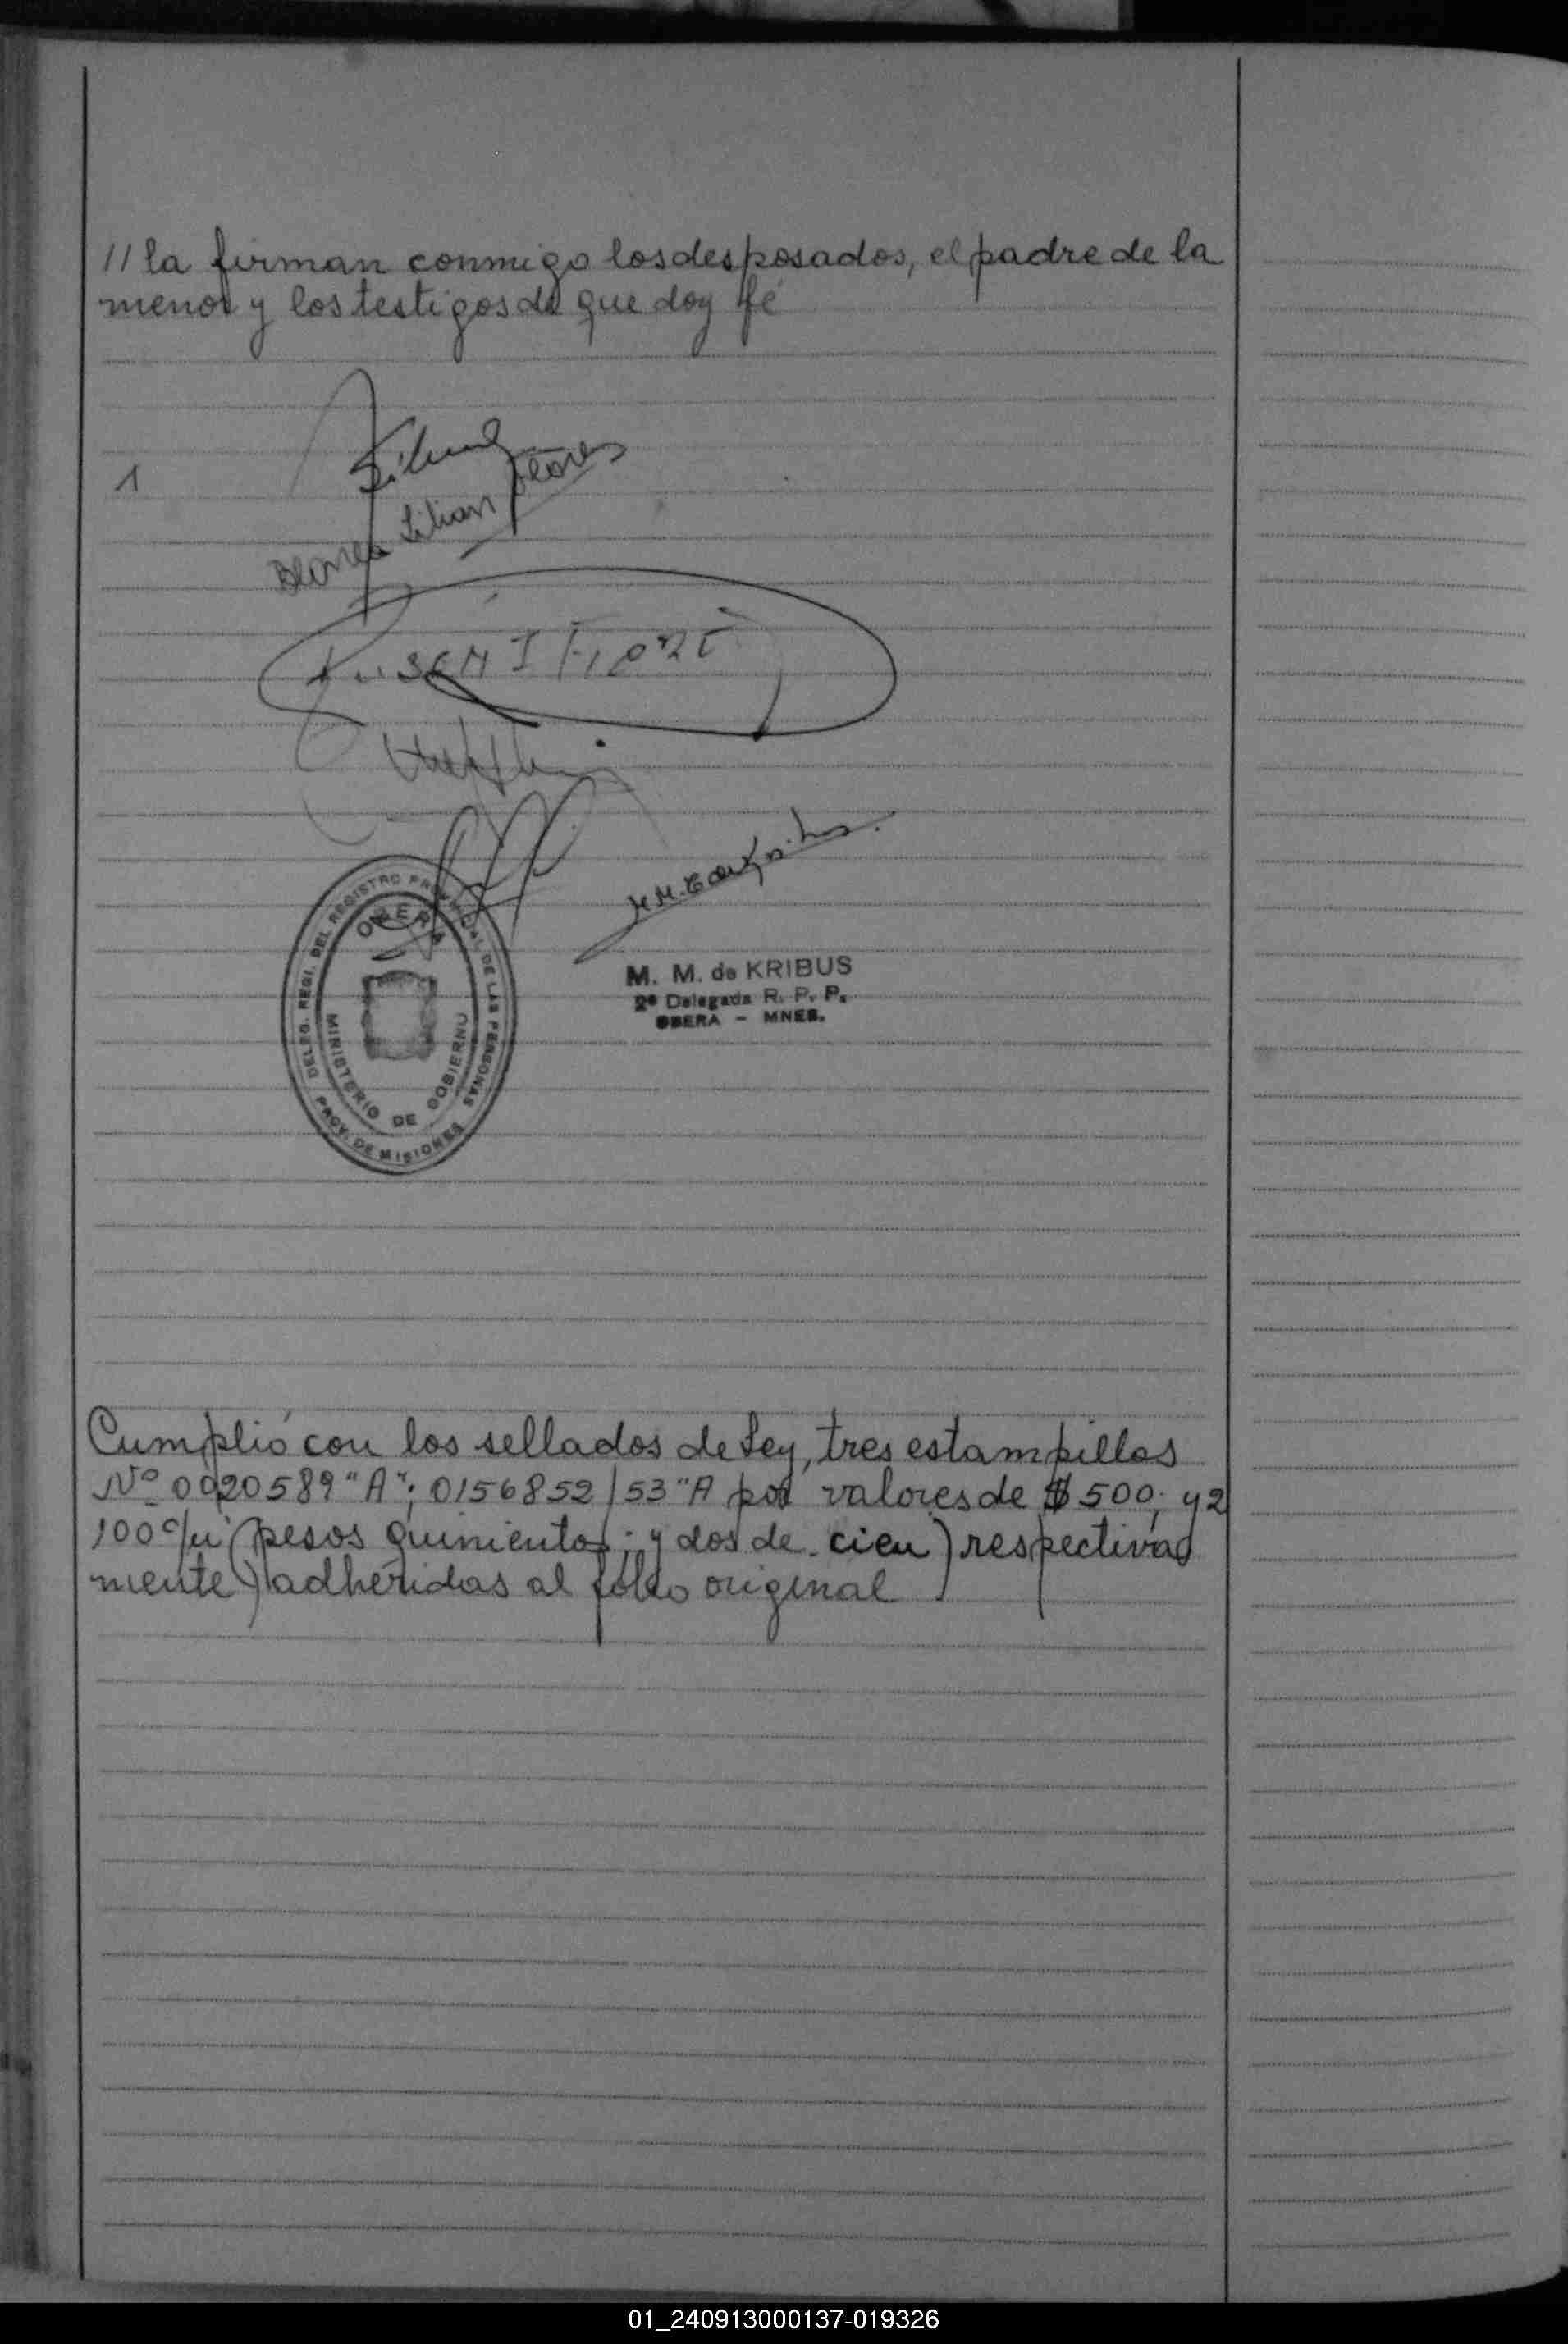 // la firman conmigo los desposados, el padre de la
menor y los testigos de que doy fé
1
Blanca Lilian
M. M. de KRIBUS
2ª Delegada R. P. P.
OBERA - MNES.
DELEG. REGI. DEL REGISTRO PROVINCIAL DE LAS PERSONAS
OBERA
MINISTERIO DE GOBIERNO
PROV. DE MISIONES
Cumplió con los sellados de Ley, tres estampillas
Nº 0020589 "A"; 0156852/53 "A por valores de $ 500; y 2
100 c/u (pesos quinientos; y dos de cien) respectiva
mente) adheridas al folio original
01_240913000137-019326